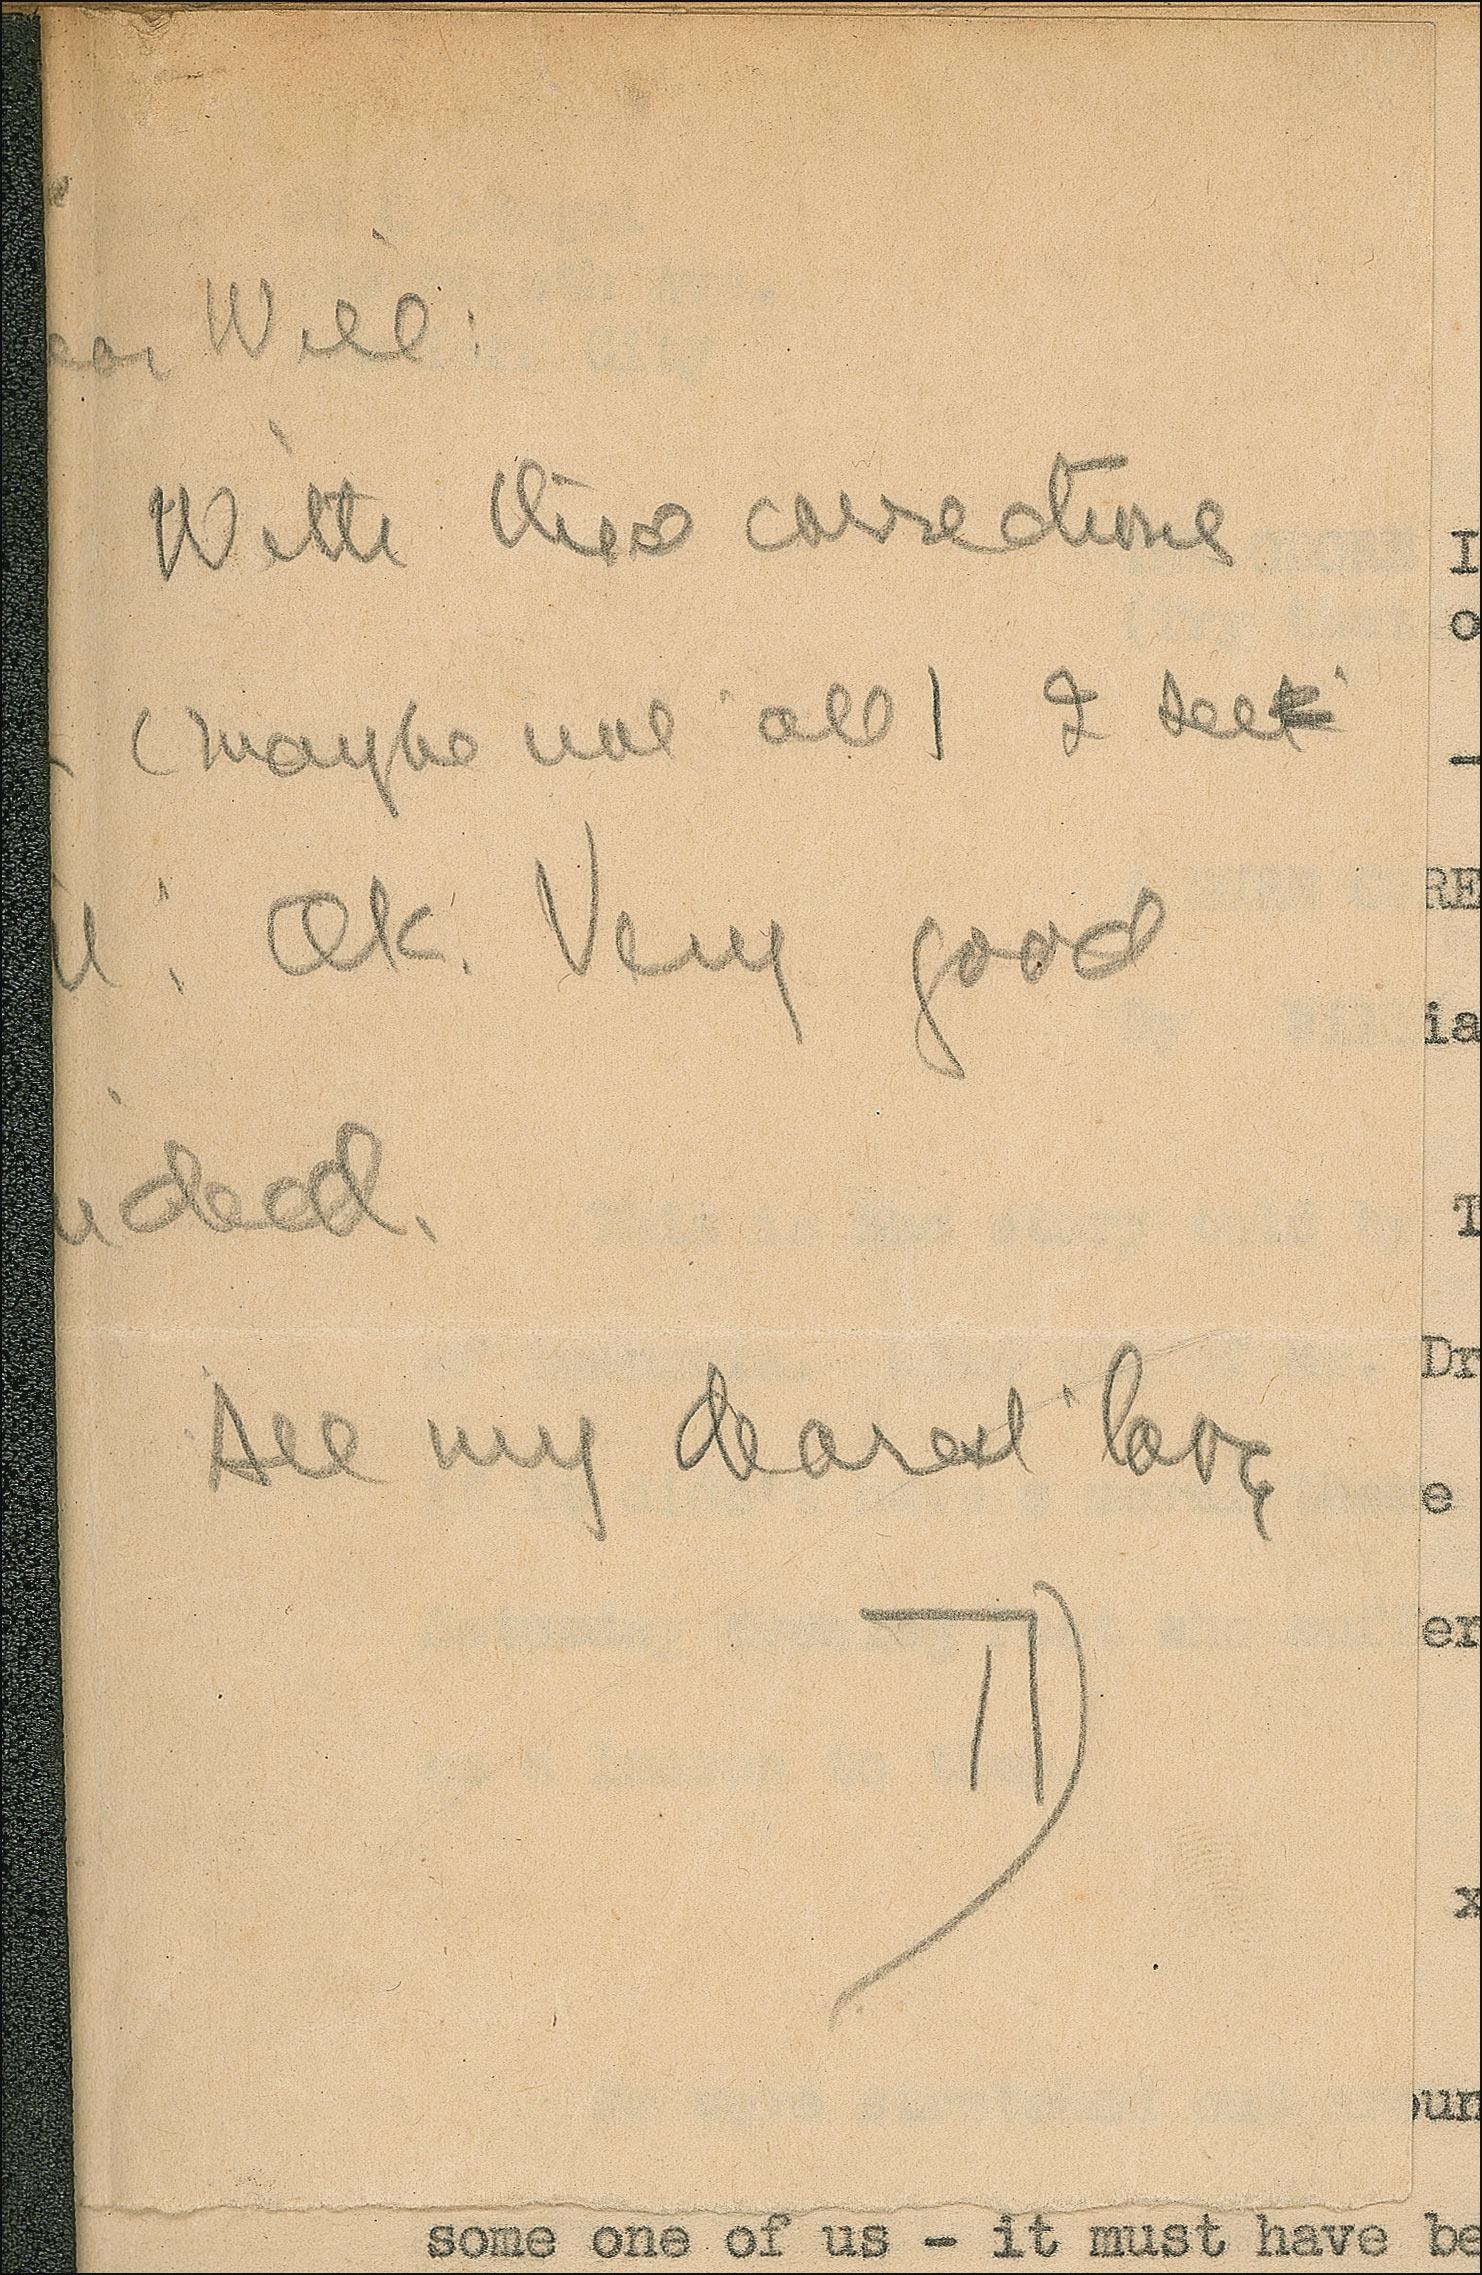 ear Will:
With these corrections
(maybe not all) I see
it: OK. Very good
ndeed.
All my dearest love
I
o
-
RE
ia
T
Dr
e
er
x
oun
some one of us - it must have be